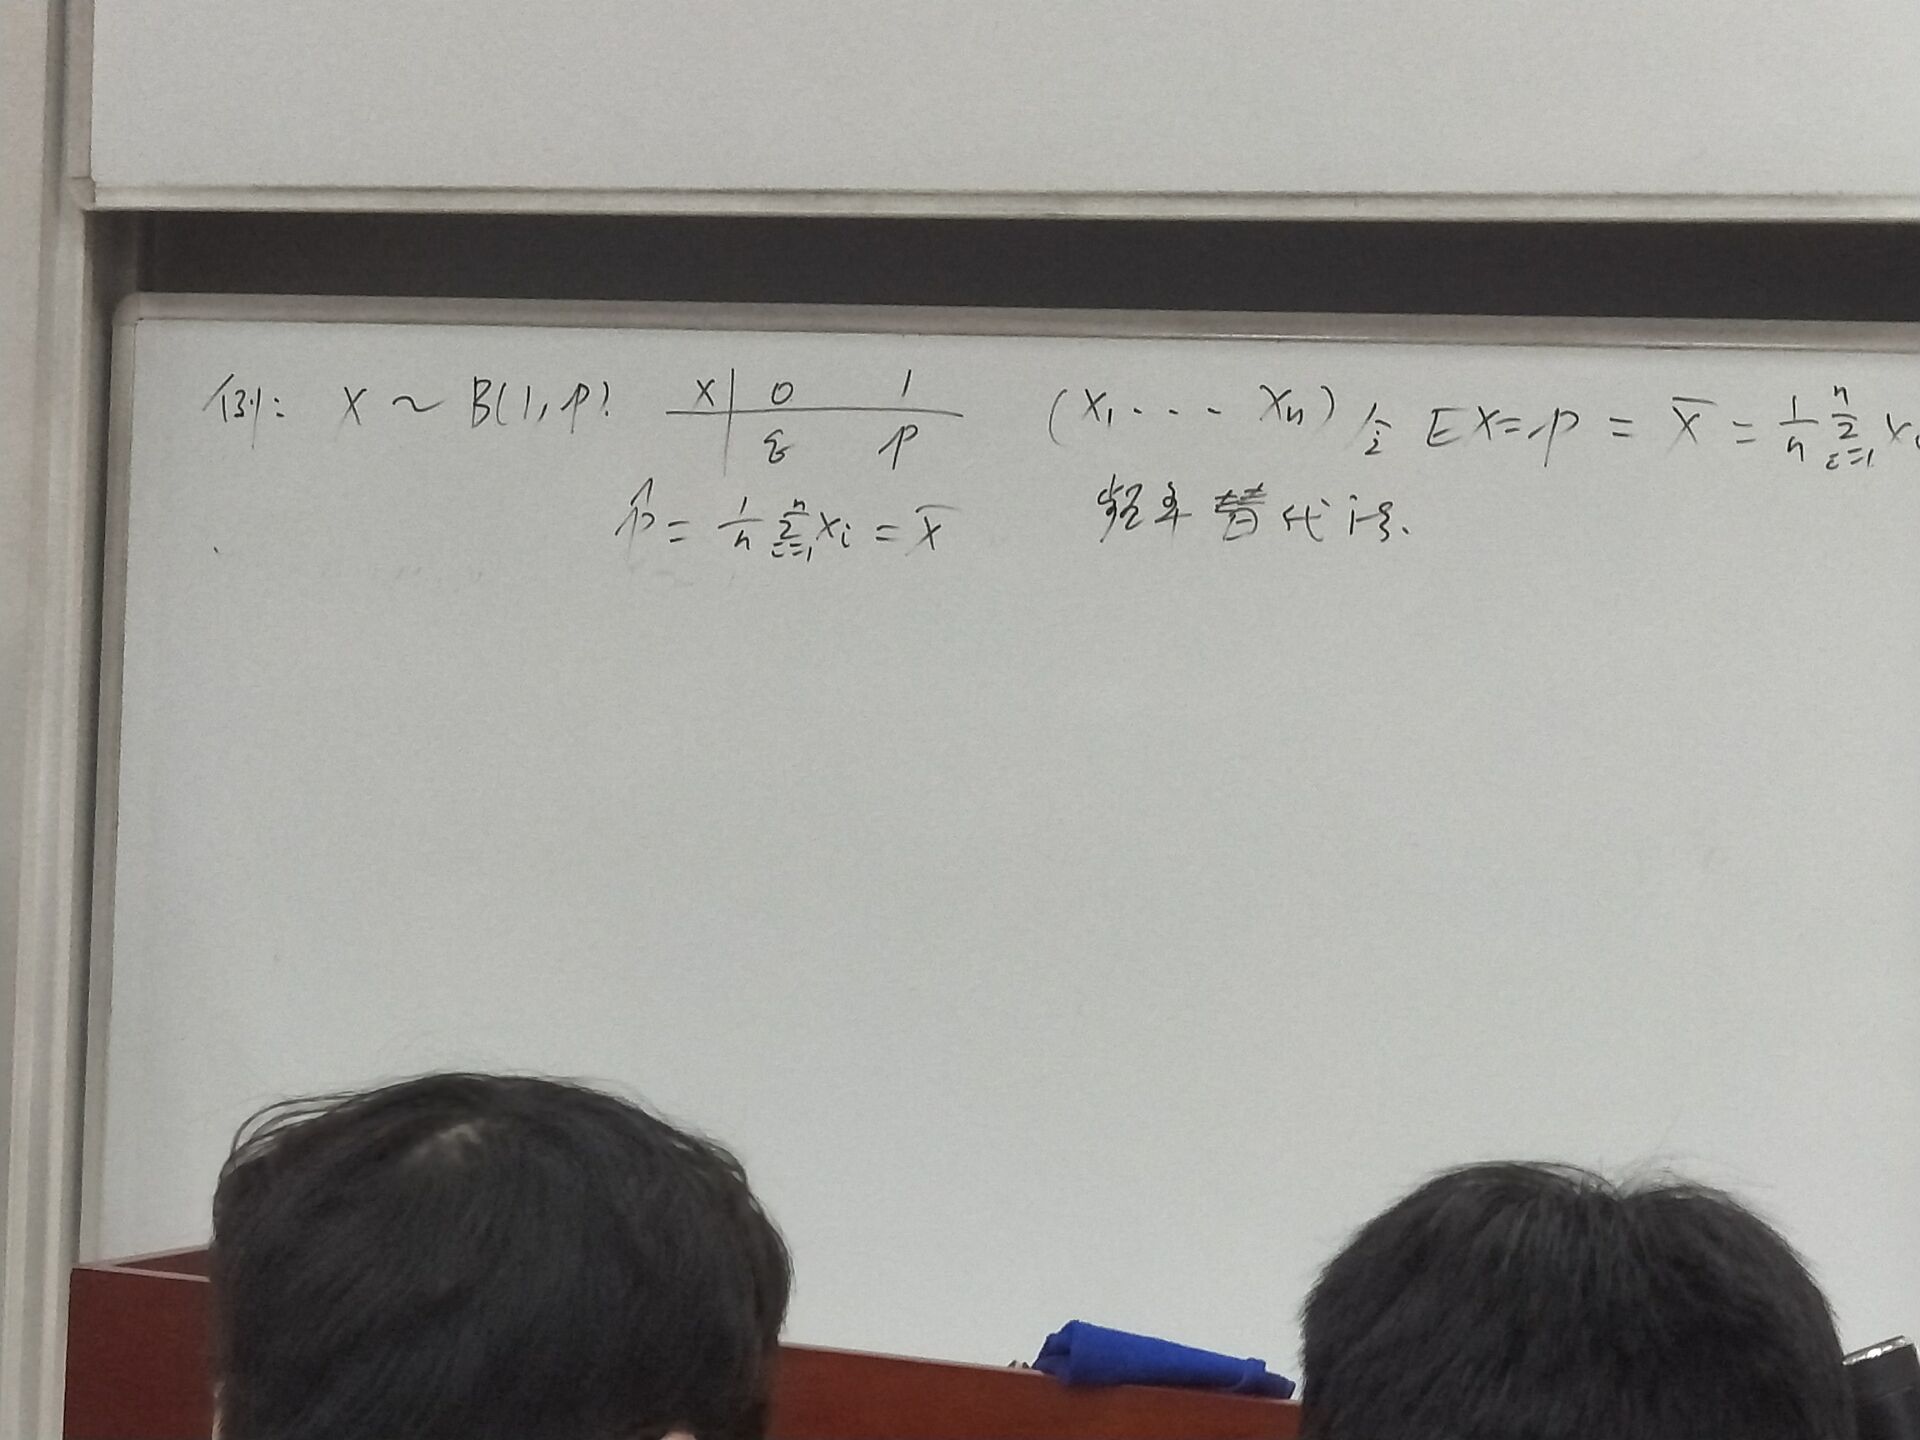 例: X ~ B(1, p). X 0 1 (X₁ . . . Xₙ) 令 EX = p = X̄ = 1/n Σᵢ₌₁ⁿ Xᵢ
q p
p̂ = 1/n Σᵢ₌₁ⁿ Xᵢ = X̄ 频率替代法.